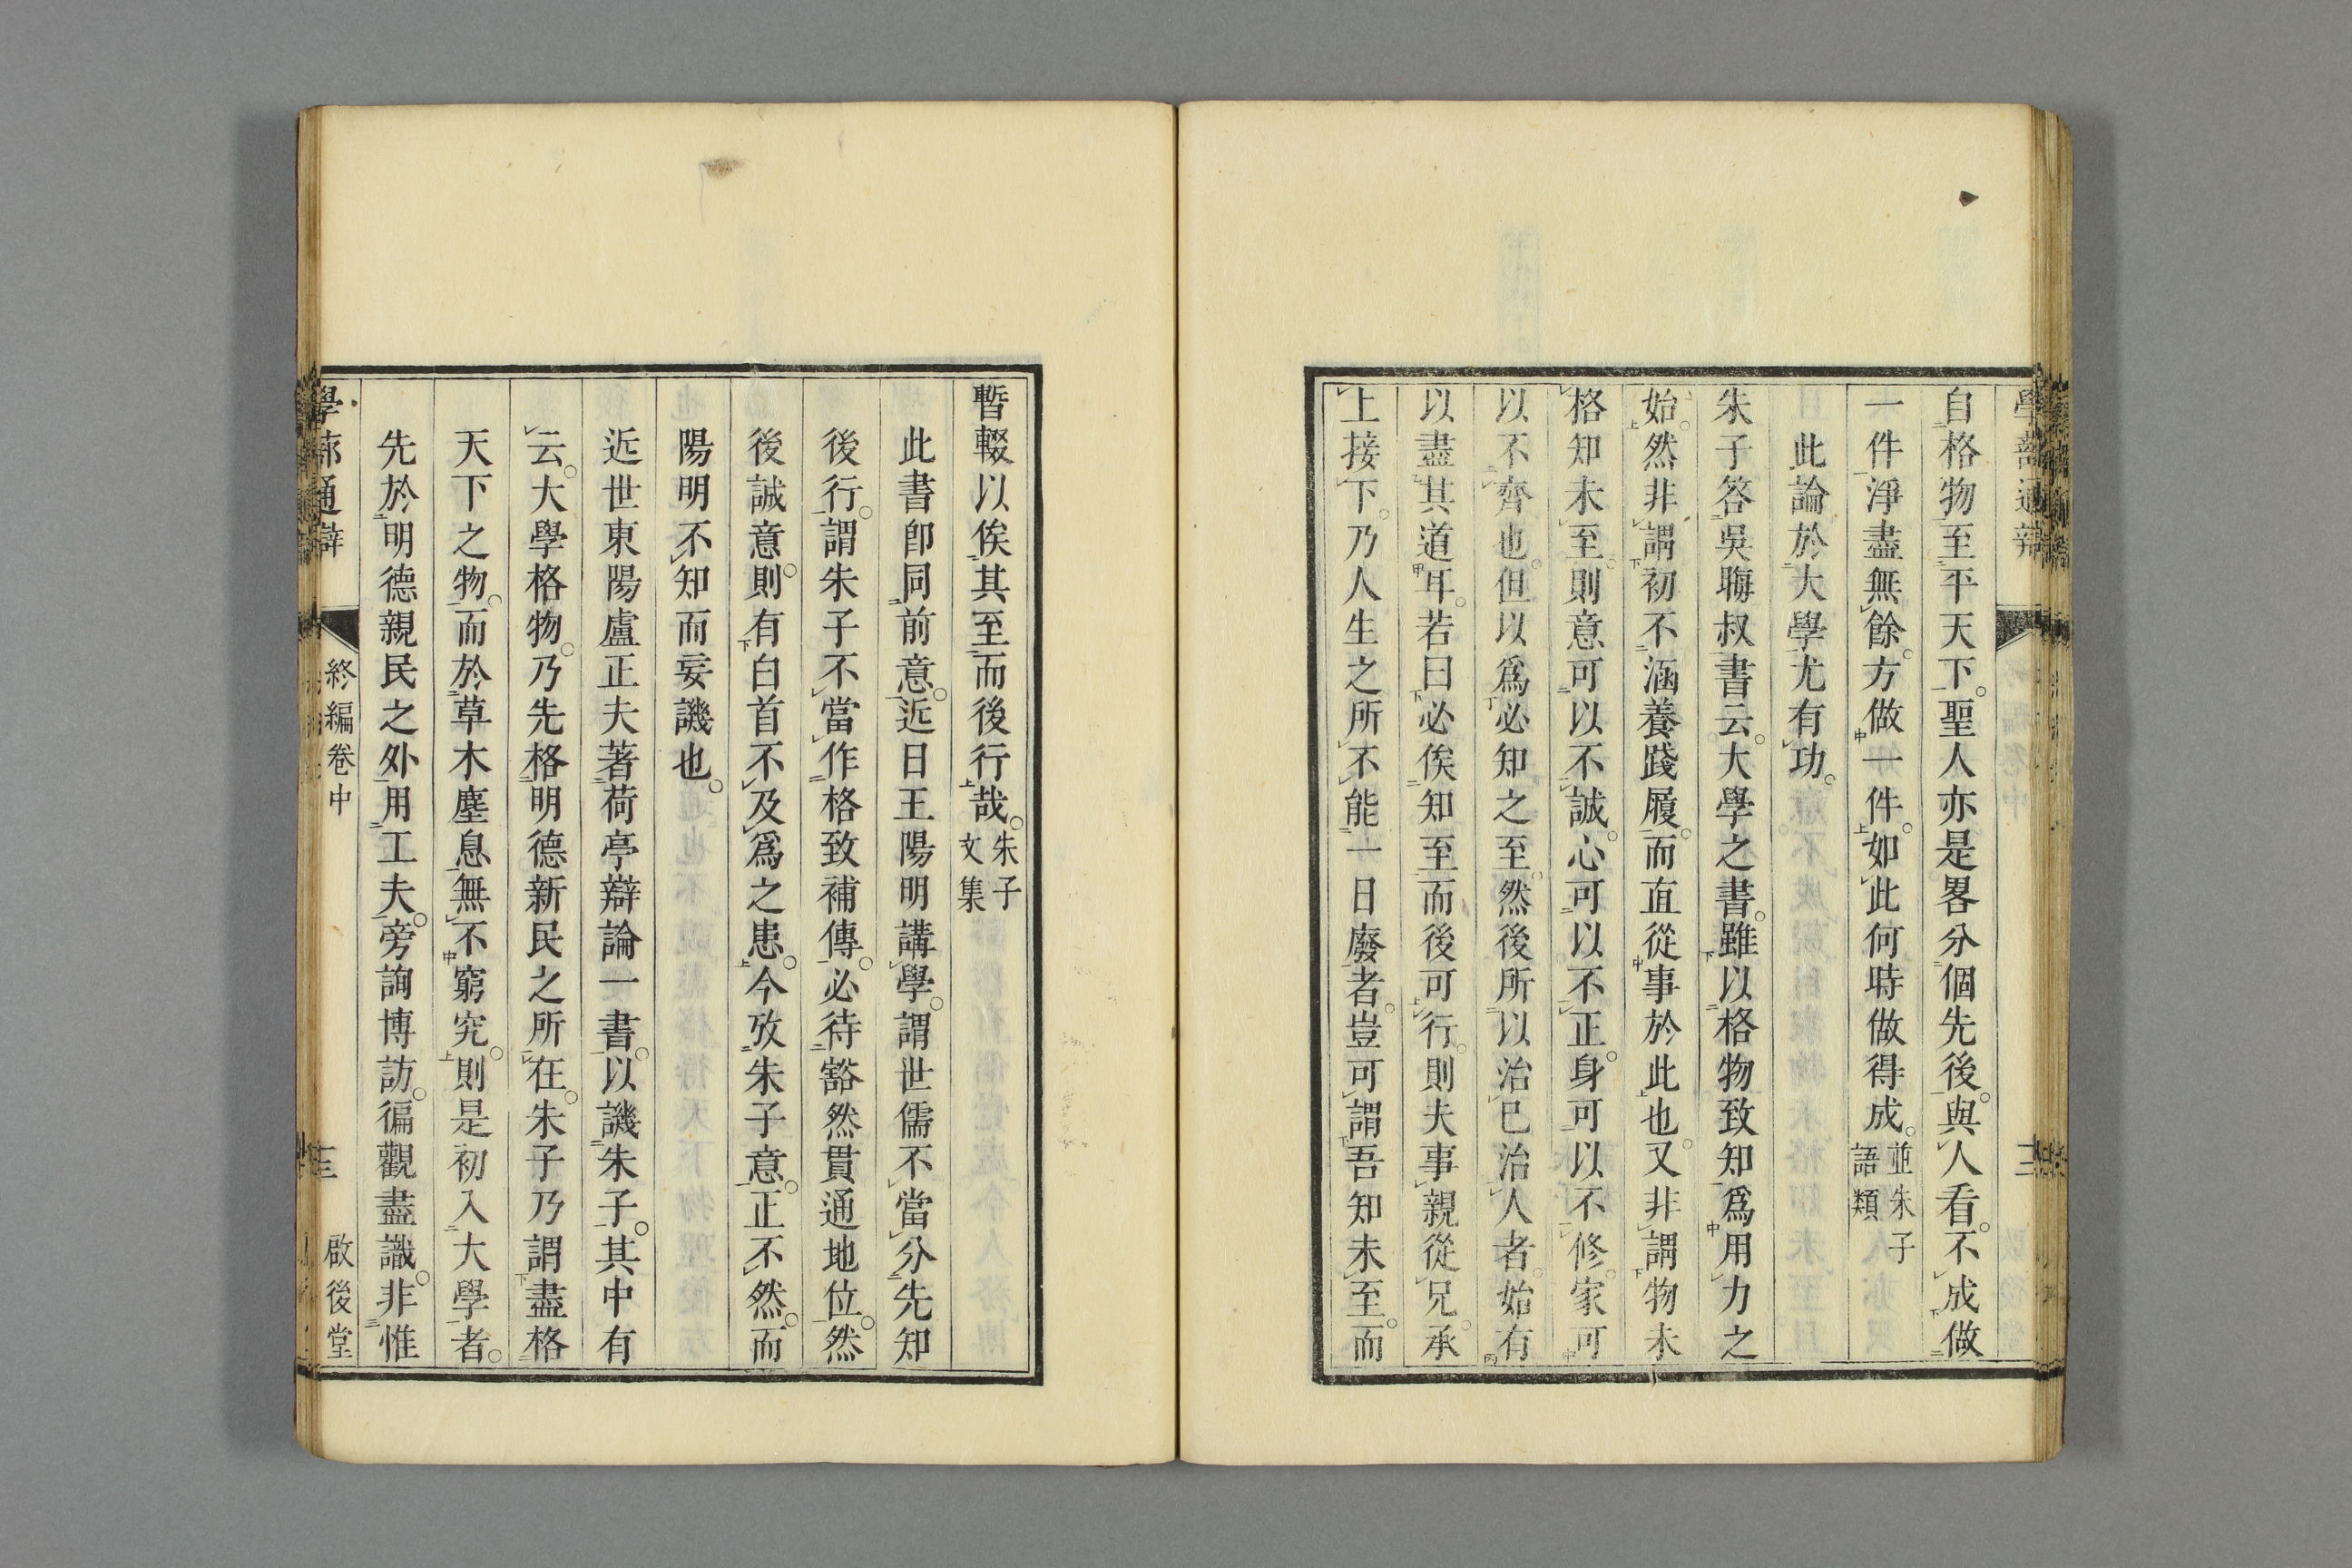 自格物至平天下聖人亦是畧分個先後與人看不成做
一件淨盡無餘方做一件如此何時做得成並朱子語類
此論於大學尤有功
朱子答吳晦叔書云大學之書雖以格物致知爲用力之
始然非謂初不涵養踐履而直從事於此也又非謂物未
格知未至則意可以不誠心可以不正身可以不修家可
以不齊也但以爲必知之至然後所以治已治人者始有
以盡其道耳若曰必俟知至而後可行則夫事親從兄承
上接下乃人生之所不能一日廢者豈可謂吾知未至而
暫輟以俟其至而後行哉朱子文集
此書卽同前意近日王陽明講學謂世儒不當分先知
後行謂朱子不當作格致補傳必待豁然貫通地位然
後誠意則有白首不及爲之患今攷朱子意正不然而
陽明不知而妄譏也
近世東陽盧正夫著荷亭辯論一書以譏朱子其中有
云大學格物乃先格明德新民之所在朱子乃謂盡格
天下之物而於草木塵息無不窮究則是初入大學者
先於明德親民之外用工夫旁詢博訪徧觀盡識非惟
學蔀通辯 終編卷中 十三 啟後堂